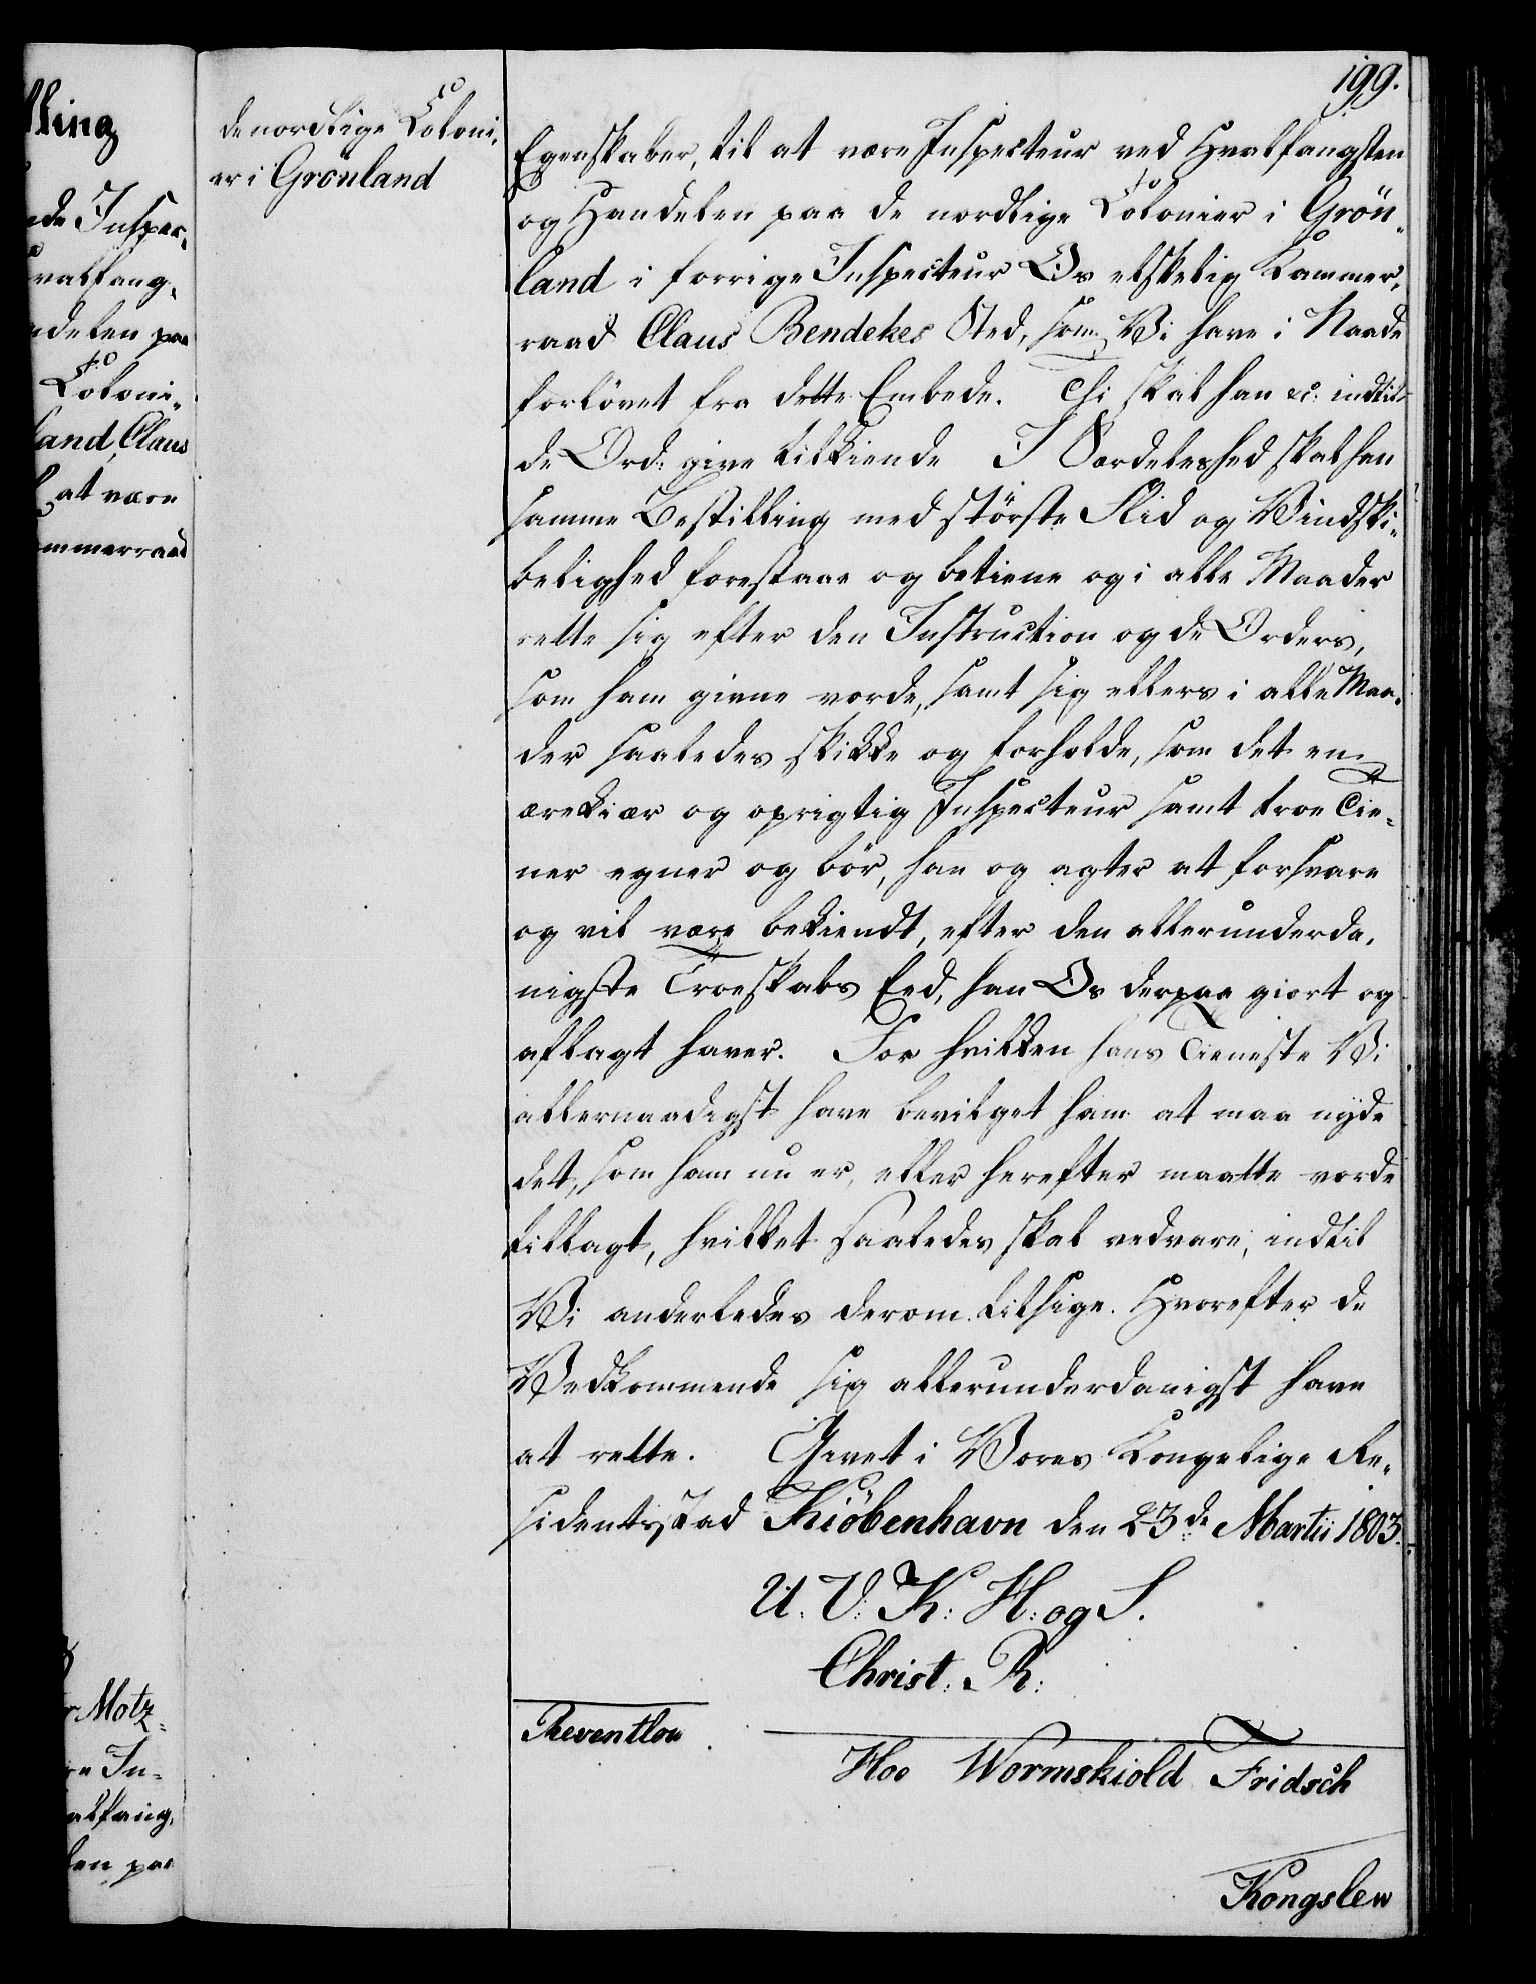 lling
nde Inspec„
valfang„
ndelen paa
Coloni„
land, Claus
at være
ammerraad
r Motz„
re In„
alfang„
len paa
de nordlige Coloni„
er i Grönland
199.
Egenskaber, til at være Inspecteur ved Hvalfangsten
og Handelen paa de nordlige Colonier i Grön„
land i forrige Inspecteur Os elskelig Kammer„
raad Claus Bendekes Sted, som Vi have i Naade
forlövet fra dette Embede. Thi skal han &c: indtil
de Ord: give tilkiende I Særdeleshed skal han
samme Bestilling med störste Flid og Vindski„
belighed forestaae og betiene og i alle Maader
rette sig efter den Instruction og de Orders,
som ham givne vorde, samt sig ellers i alle Maa„
der saaledes skikke og forholde, som det en
ærekiær og oprigtig Inspecteur samt troe Tie„
ner egner og bör, han og agter at forsvare
og vil være bekiendt, efter den allerunderda„
nigste Troeskabs Eed, han Os derpaa giort og
aflagt haver. For hvilken hans Tieneste Vi
allernaadigst have bevilget ham at maa nyde
det, som ham nu er, eller herefter maatte vorde
tillagt, hvilket saaledes skal vedvare, indtil
Vi anderledes derom tilsige. Hvorefter de
Vedkommende sig allerunderdanigst have
at rette. Givet i Vores Kongelige Re„
sidentsstad Kiöbenhavn den 23de Martii 1803.
U: V: K: H: og S.
Christ: R:
Reventlou
Hoe Wormskiold Fridsch
Kongslew